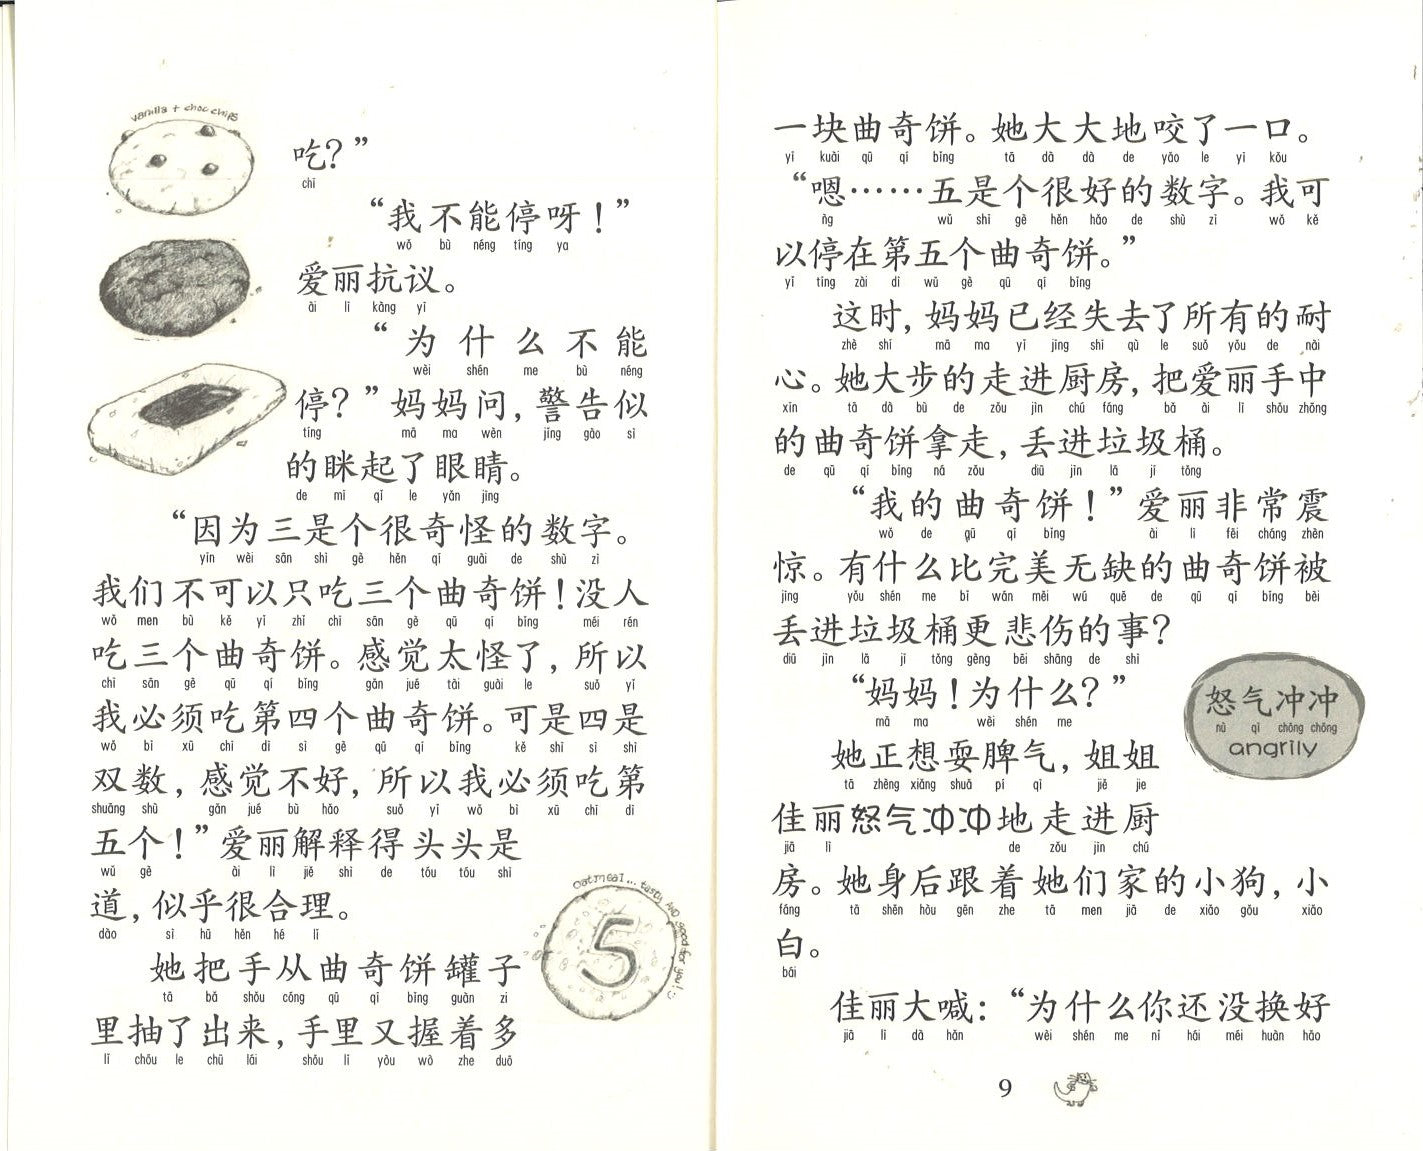 vanilla + choc chips
吃？”
chī
“我不能停呀！”
wǒ bù néng tíng ya
爱丽抗议。
ài lì kàng yì
“为什么不能
wèi shén me bù néng
停？”妈妈问，警告似
tíng mā ma wèn jǐng gào sì
的眯起了眼睛。
de mī qǐ le yǎn jing
“因为三是个很奇怪的数字。
yīn wèi sān shì gè hěn qí guài de shù zì
我们不可以只吃三个曲奇饼！没人
wǒ men bù kě yǐ zhǐ chī sān gè qū qí bǐng méi rén
吃三个曲奇饼。感觉太怪了，所以
chī sān gè qū qí bǐng gǎn jué tài guài le suǒ yǐ
我必须吃第四个曲奇饼。可是四是
wǒ bì xū chī dì sì gè qū qí bǐng kě shì sì shì
双数，感觉不好，所以我必须吃第
shuāng shù gǎn jué bù hǎo suǒ yǐ wǒ bì xū chī dì
五个！”爱丽解释得头头是
wǔ gè ài lì jiě shì de tóu tóu shì
道，似乎很合理。
dào sì hū hěn hé lǐ
她把手从曲奇饼罐子
tā bǎ shǒu cóng qū qí bǐng guàn zi
里抽了出来，手里又握着多
lǐ chōu le chū lái shǒu lǐ yòu wò zhe duō
oatmeal... tasty AND good for you! :)
5
一块曲奇饼。她大大地咬了一口。
yī kuài qū qí bǐng tā dà dà de yǎo le yī kǒu
“嗯……五是个很好的数字。我可
ǹg wǔ shì gè hěn hǎo de shù zì wǒ kě
以停在第五个曲奇饼。”
yǐ tíng zài dì wǔ gè qū qí bǐng
这时，妈妈已经失去了所有的耐
zhè shí mā ma yǐ jīng shī qù le suǒ yǒu de nài
心。她大步的走进厨房，把爱丽手中
xīn tā dà bù de zǒu jìn chú fáng bǎ ài lì shǒu zhōng
的曲奇饼拿走，丢进垃圾桶。
de qū qí bǐng ná zǒu diū jìn lā jī tǒng
“我的曲奇饼！”爱丽非常震
wǒ de qū qí bǐng ài lì fēi cháng zhèn
惊。有什么比完美无缺的曲奇饼被
jīng yǒu shén me bǐ wán měi wú quē de qū qí bǐng bèi
丢进垃圾桶更悲伤的事？
diū jìn lā jī tǒng gèng bēi shāng de shì
“妈妈！为什么？”
mā ma wèi shén me
怒气冲冲
nù qì chōng chōng
angrily
她正想耍脾气，姐姐
tā zhèng xiǎng shuǎ pí qì jiě jie
佳丽怒气冲冲地走进厨
jiā lì de zǒu jìn chú
房。她身后跟着她们家的小狗，小
fáng tā shēn hòu gēn zhe tā men jiā de xiǎo gǒu xiǎo
白。
bái
佳丽大喊：“为什么你还没换好
jiā lì dà hǎn wèi shén me nǐ hái méi huàn hǎo
9